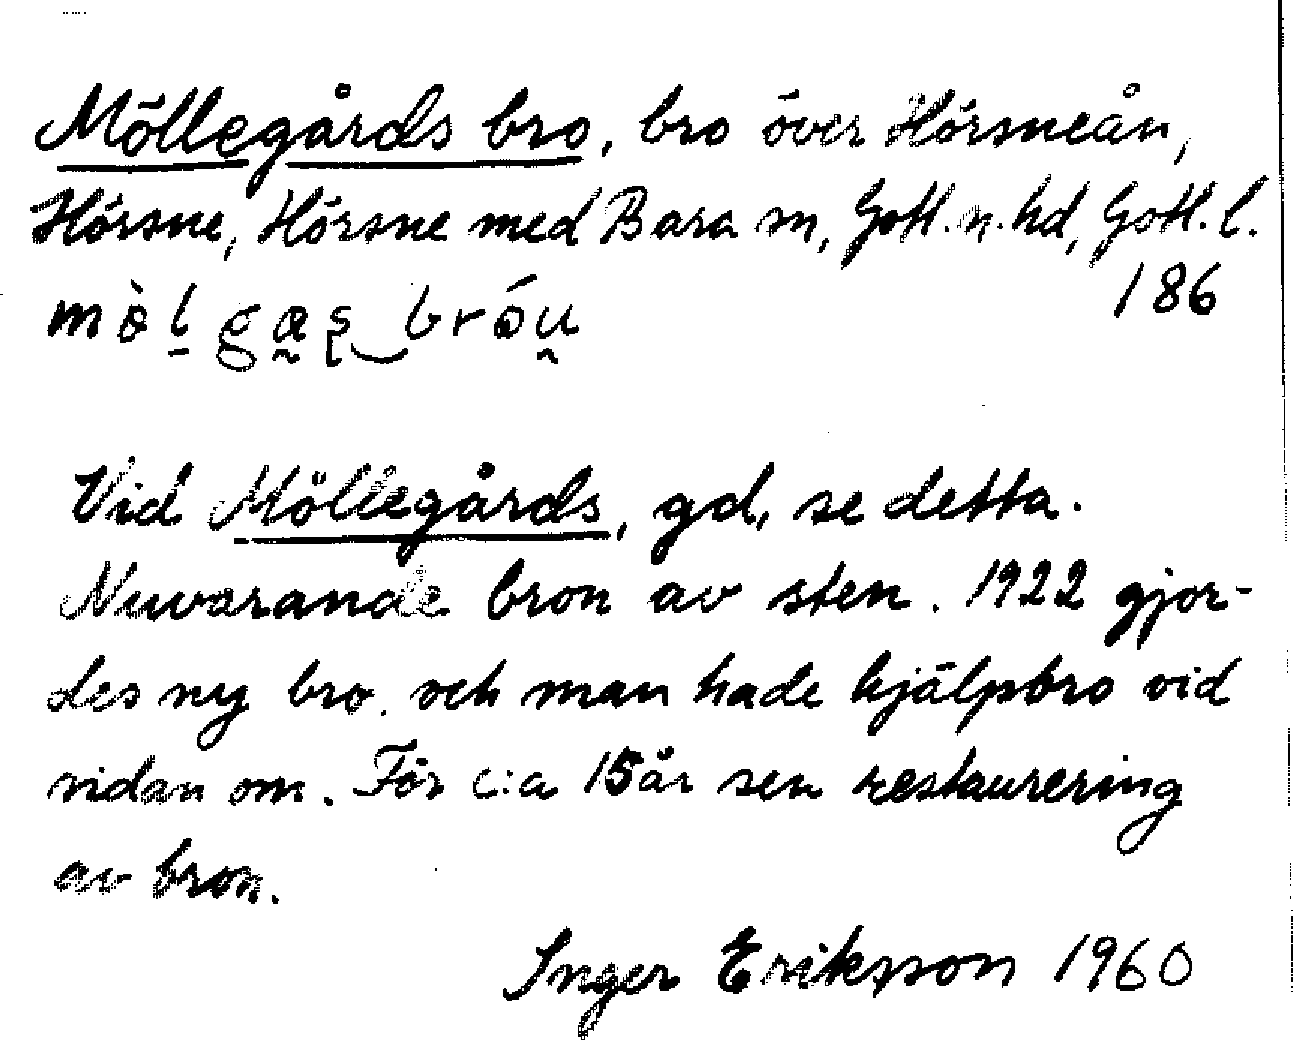 Möllegårds bro, bro över Hörsneån,
Hörsne, Hörsne med Bara sn, Gotl. n. hd, Gotl. l.
186
Vid Möllegårds, gd, se detta.
Nuvarande bron av sten. 1922 gjor-
des ny bro, och man hade hjälpbro vid
sidan om. För c:a 15 år sen restaurering
av bron.
Inger Eriksson 1960